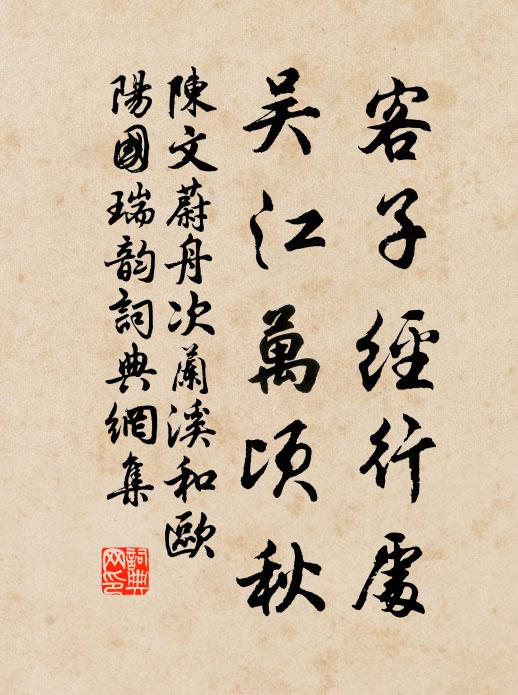 客子經行處
吳江萬頃秋
陳文蔚舟次蘭溪和歐
陽國瑞韵詞典網集
詞典
网印